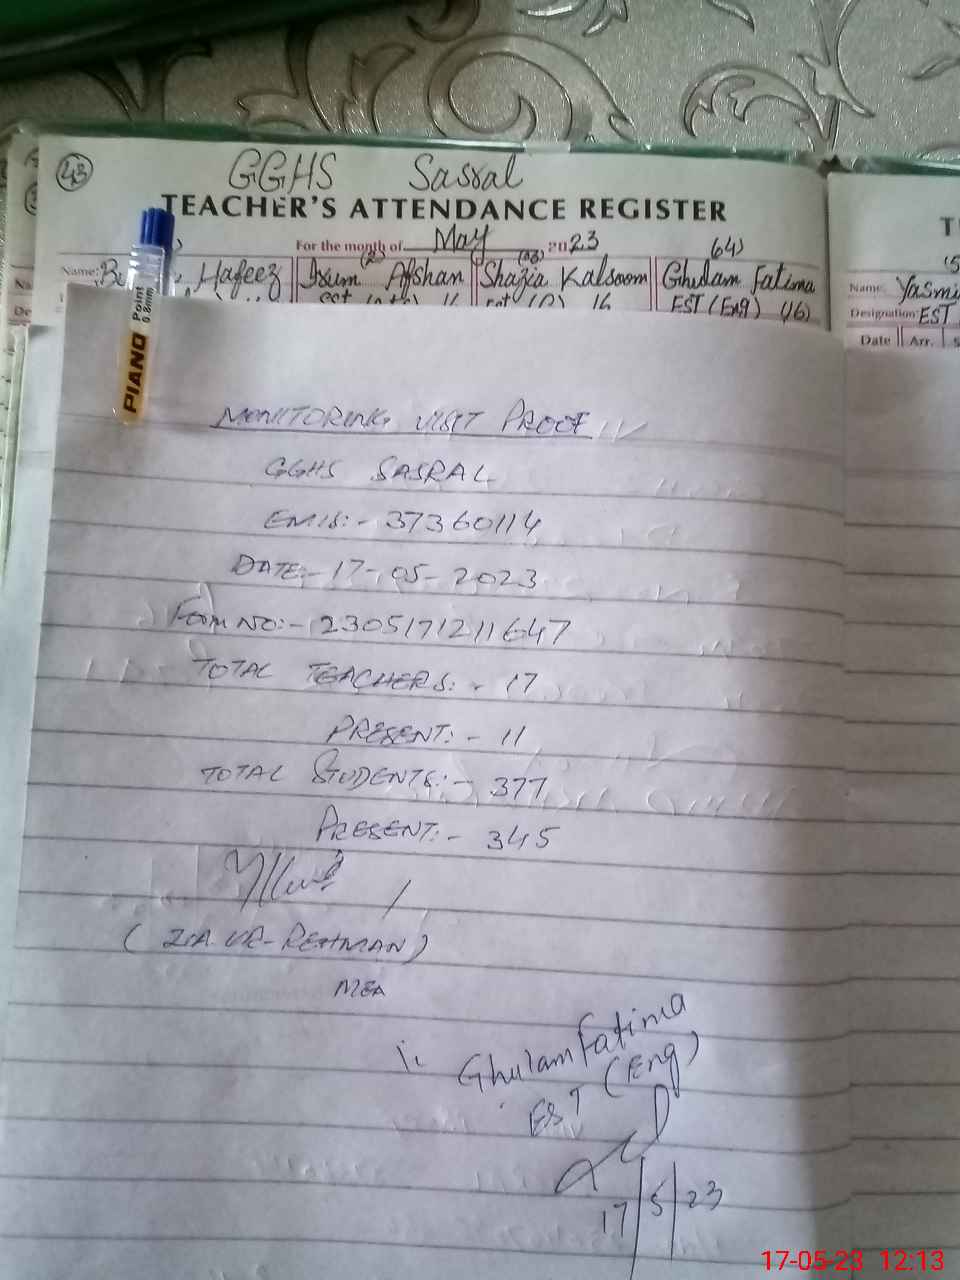 43
GGHS Sasral
TEACHER'S ATTENDANCE REGISTER
For the month of May 2023
64)
Name: Hafeez Ixum Afshan Shazia Kalsoom Ghulam Fatima
EST (Eng) (16)
Name: Yasmi
Designation: EST
Date Arr.
PIANO Point 0.8mm
MONITORING VISIT PROOF
GGHS SASRAL
EMIS:- 37360114
DATE:- 17-05-2023
Form NO:- 2305171211647
TOTAL TEACHERS:- 17
PRESENT:- 11
TOTAL STUDENTS:- 377
PRESENT:- 345
(ZIA-UR-REHMAN)
MEA
Ghulam Fatima
EST (Eng)
17/5/23
17-05-23 12:13